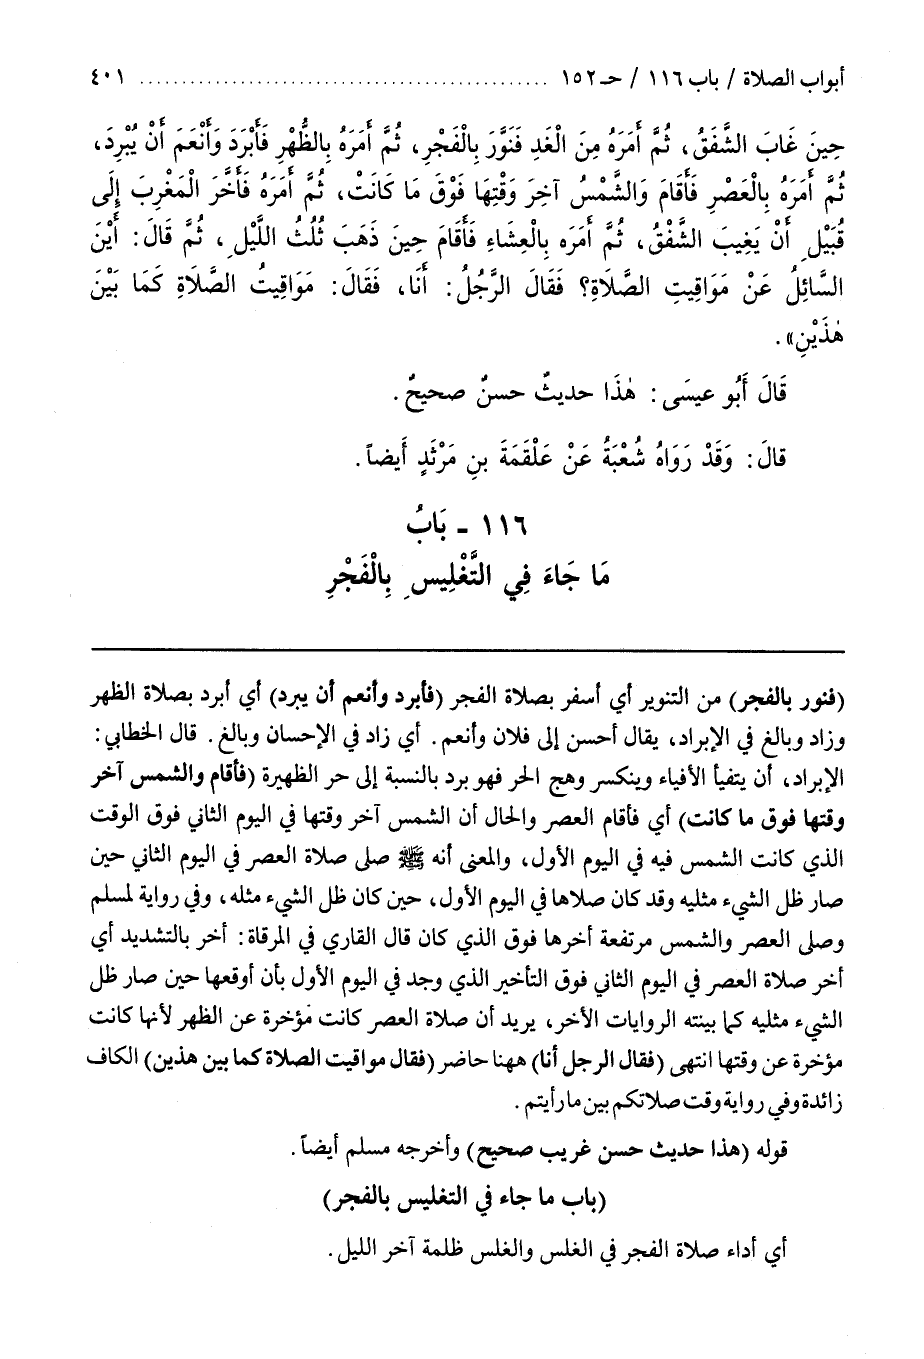 أبواب الصلاة / باب ١١٦ / حـ ١٥٢ ................................................ ٤٠١
حِينَ غَابَ الشَّفَقُ، ثُمَّ أَمَرَهُ مِنَ الْغَدِ فَنَوَّرَ بِالْفَجْرِ، ثُمَّ أَمَرَهُ بِالظُّهْرِ فَأَبْرَدَ وَأَنْعَمَ أَنْ يُبْرِدَ،
ثُمَّ أَمَرَهُ بِالْعَصْرِ فَأَقَامَ وَالشَّمْسُ آخِرَ وَقْتِهَا فَوْقَ مَا كَانَتْ، ثُمَّ أَمَرَهُ فَأَخَّرَ الْمَغْرِبَ إِلَى
قُبَيْلِ أَنْ يَغِيبَ الشَّفْقُ، ثُمَّ أَمَرَه بِالْعِشَاءِ فَأَقَامَ حِينَ ذَهَبَ ثُلُثُ اللَّيْلِ، ثُمَّ قَالَ: أَيْنَ
السَّائِلُ عَنْ مَوَاقِيتِ الصَّلَاةِ؟ فَقَالَ الرَّجُلُ: أَنَا، فَقَالَ: مَوَاقِيتُ الصَّلَاةِ كَمَا بَيْنَ
هٰذَيْنِ».
قَالَ أَبُو عيسَى: هٰذَا حديثٌ حسنٌ صحيحٌ.
قالَ: وَقَدْ رَوَاهُ شُعْبَةُ عَنْ عَلْقَمَةَ بنِ مَرْثَدٍ أَيضاً.
١١٦ - بَابُ
مَا جَاءَ فِي التَّغْلِيسِ بِالْفَجْرِ
(فنور بالفجر) من التنوير أي أسفر بصلاة الفجر (فأبرد وأنعم أن يبرد) أي أبرد بصلاة الظهر
وزاد وبالغ في الإبراد، يقال أحسن إلى فلان وأنعم. أي زاد في الإحسان وبالغ. قال الخطابي:
الإبراد، أن يتفيأ الأفياء وينكسر وهج الحر فهو برد بالنسبة إلى حر الظهيرة (فأقام والشمس آخر
وقتها فوق ما كانت) أي فأقام العصر والحال أن الشمس آخر وقتها في اليوم الثاني فوق الوقت
الذي كانت الشمس فيه في اليوم الأول، والمعنى أنه ﷺ صلى صلاة العصر في اليوم الثاني حين
صار ظل الشيء مثليه وقد كان صلاها في اليوم الأول، حين كان ظل الشيء مثله، وفي رواية لمسلم
وصلى العصر والشمس مرتفعة أخرها فوق الذي كان قال القاري في المرقاة: أخر بالتشديد أي
أخر صلاة العصر في اليوم الثاني فوق التأخير الذي وجد في اليوم الأول بأن أوقعها حين صار ظل
الشيء مثليه كما بينته الروايات الأخر، يريد أن صلاة العصر كانت مؤخرة عن الظهر لأنها كانت
مؤخرة عن وقتها انتهى (فقال الرجل أنا) ههنا حاضر (فقال مواقيت الصلاة كما بين هذين) الكاف
زائدة وفي رواية وقت صلاتكم بين ما رأيتم.
قوله (هذا حديث حسن غريب صحيح) وأخرجه مسلم أيضاً.
(باب ما جاء في التغليس بالفجر)
أي أداء صلاة الفجر في الغلس والغلس ظلمة آخر الليل.